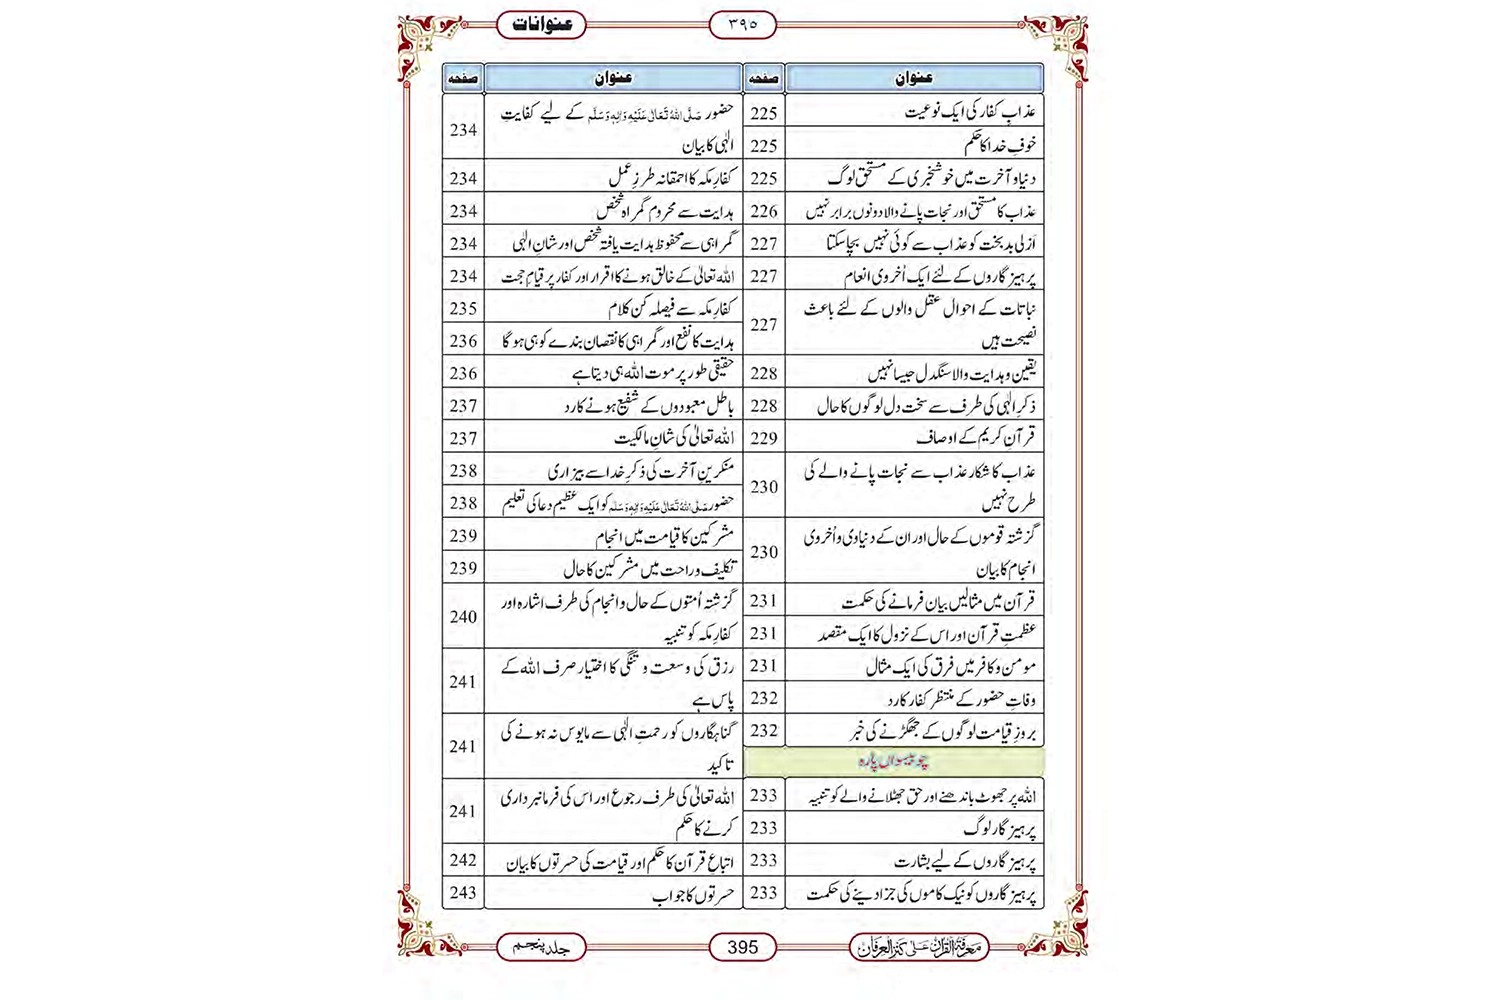 عنوانات
٣٩٥
عنوان صفحہ
عذابِ کفار کی ایک نوعیت 225
خوفِ خدا کا حکم 225
دنیا و آخرت میں خوشخبری کے مستحق لوگ 225
عذاب کا مستحق اور نجات پانے والا دونوں برابر نہیں 226
اَزلی بدبخت کو عذاب سے کوئی نہیں بچا سکتا 227
پرہیز گاروں کے لئے ایک اُخروی انعام 227
نباتات کے احوال عقل والوں کے لئے باعث
نصیحت ہیں 227
یقین و ہدایت والا سنگدل جیسا نہیں 228
ذکرِ الٰہی کی طرف سے سخت دل لوگوں کا حال 228
قرآنِ کریم کے اوصاف 229
عذاب کا شکار عذاب سے نجات پانے والے کی
طرح نہیں 230
گزشتہ قوموں کے حال اور ان کے دنیاوی و اُخروی
انجام کا بیان 230
قرآن میں مثالیں بیان فرمانے کی حکمت 231
عظمتِ قرآن اور اس کے نزول کا ایک مقصد 231
مومن و کافر میں فرق کی ایک مثال 231
وفاتِ حضور کے منتظر کفار کا رد 232
بروزِ قیامت لوگوں کے جھگڑنے کی خبر 232
چوبیسواں پارہ
اللہ پر جھوٹ باندھنے اور حق جھٹلانے والے کو تنبیہ 233
پرہیز گار لوگ 233
پرہیز گاروں کے لیے بشارت 233
پرہیز گاروں کو نیک کاموں کی جزا دینے کی حکمت 233
عنوان صفحہ
حضور صَلَّی اللہُ تَعَالٰی عَلَیْہِ وَاٰلِہٖ وَسَلَّم کے لیے کفایتِ
الٰہی کا بیان 234
کفارِ مکہ کا احمقانہ طرزِ عمل 234
ہدایت سے محروم گمراہ شخص 234
گمراہی سے محفوظ ہدایت یافتہ شخص اور شانِ الٰہی 234
اللہ تعالیٰ کے خالق ہونے کا اقرار اور کفار پر قیامِ حجت 234
کفارِ مکہ سے فیصلہ کن کلام 235
ہدایت کا نفع اور گمراہی کا نقصان بندے کو ہی ہو گا 236
حقیقی طور پر موت اللہ ہی دیتا ہے 236
باطل معبودوں کے شفیع ہونے کا رد 237
اللہ تعالیٰ کی شانِ مالکیت 237
منکرینِ آخرت کی ذکرِ خدا سے بیزاری 238
حضور صَلَّی اللہُ تَعَالٰی عَلَیْہِ وَاٰلِہٖ وَسَلَّم کو ایک عظیم دعا کی تعلیم 238
مشرکین کا قیامت میں انجام 239
تکلیف و راحت میں مشرکین کا حال 239
گزشتہ اُمتوں کے حال و انجام کی طرف اشارہ اور
کفارِ مکہ کو تنبیہ 240
رزق کی وسعت و تنگی کا اختیار صرف اللہ کے
پاس ہے 241
گناہگاروں کو رحمتِ الٰہی سے مایوس نہ ہونے کی
تاکید 241
اللہ تعالیٰ کی طرف رجوع اور اس کی فرمانبرداری
کرنے کا حکم 241
اتباعِ قرآن کا حکم اور قیامت کی حسرتوں کا بیان 242
حسرتوں کا جواب 243
معرفۃ القرآن علٰی کنز العرفان
395
جلد پنجم